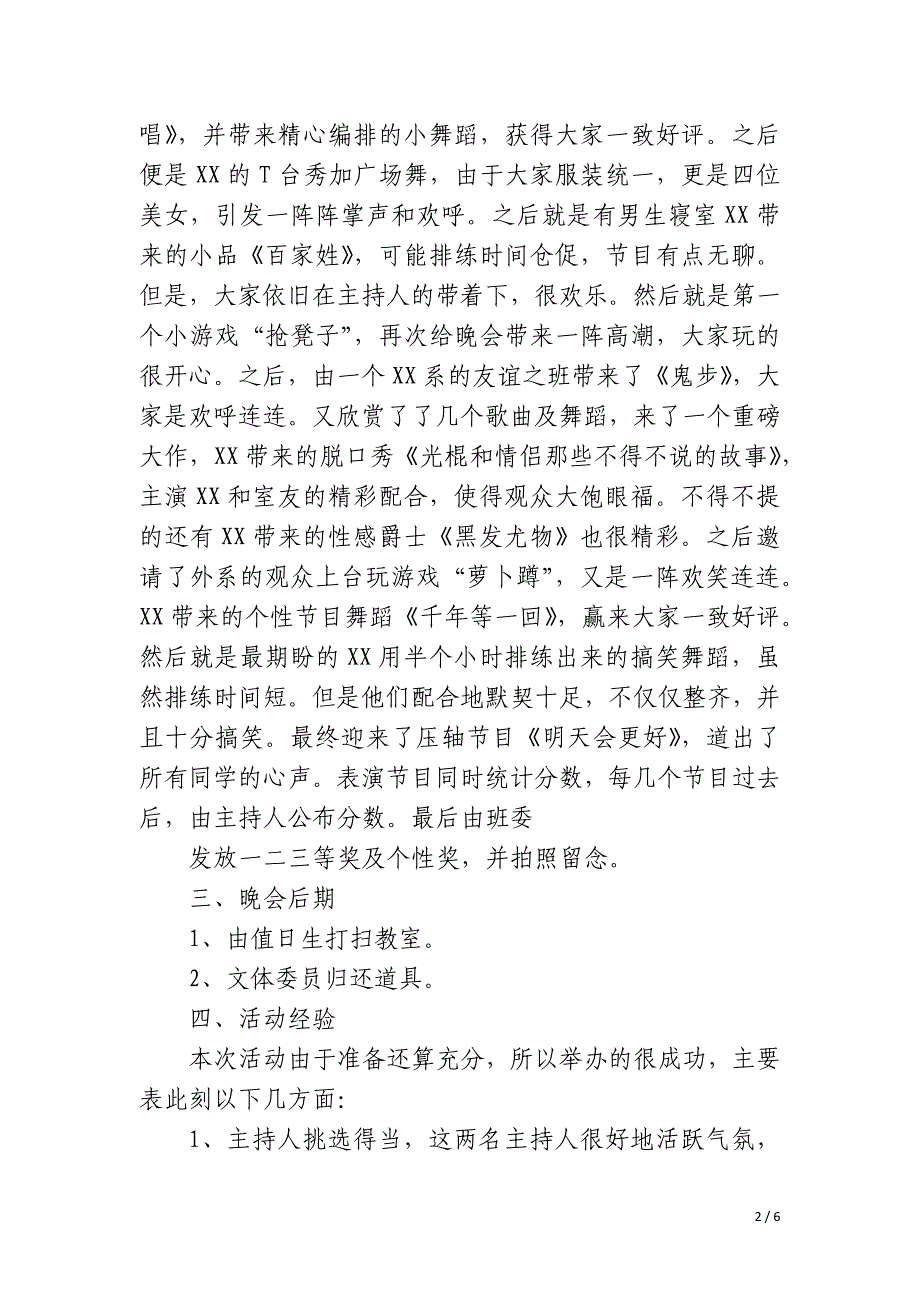 唱》，并带来精心编排的小舞蹈，获得大家一致好评。之后
便是 XX 的 T 台秀加广场舞，由于大家服装统一，更是四位
美女，引发一阵阵掌声和欢呼。之后就是有男生寝室 XX 带
来的小品《百家姓》，可能排练时间仓促，节目有点无聊。
但是，大家依旧在主持人的带着下，很欢乐。然后就是第一
个小游戏“抢凳子”，再次给晚会带来一阵高潮，大家玩的
很开心。之后，由一个 XX 系的友谊之班带来了《鬼步》，大
家是欢呼连连。又欣赏了了几个歌曲及舞蹈，来了一个重磅
大作，XX 带来的脱口秀《光棍和情侣那些不得不说的故事》，
主演 XX 和室友的精彩配合，使得观众大饱眼福。不得不提
的还有 XX 带来的性感爵士《黑发尤物》也很精彩。之后邀
请了外系的观众上台玩游戏“萝卜蹲”，又是一阵欢笑连连。
XX 带来的个性节目舞蹈《千年等一回》，赢来大家一致好评。
然后就是最期盼的 XX 用半个小时排练出来的搞笑舞蹈，虽
然排练时间短。但是他们配合地默契十足，不仅仅整齐，并
且十分搞笑。最终迎来了压轴节目《明天会更好》，道出了
所有同学的心声。表演节目同时统计分数，每几个节目过去
后，由主持人公布分数。最后由班委
发放一二三等奖及个性奖，并拍照留念。
三、晚会后期
1、由值日生打扫教室。
2、文体委员归还道具。
四、活动经验
本次活动由于准备还算充分，所以举办的很成功，主要
表此刻以下几方面：
1、主持人挑选得当，这两名主持人很好地活跃气氛，
2 / 6